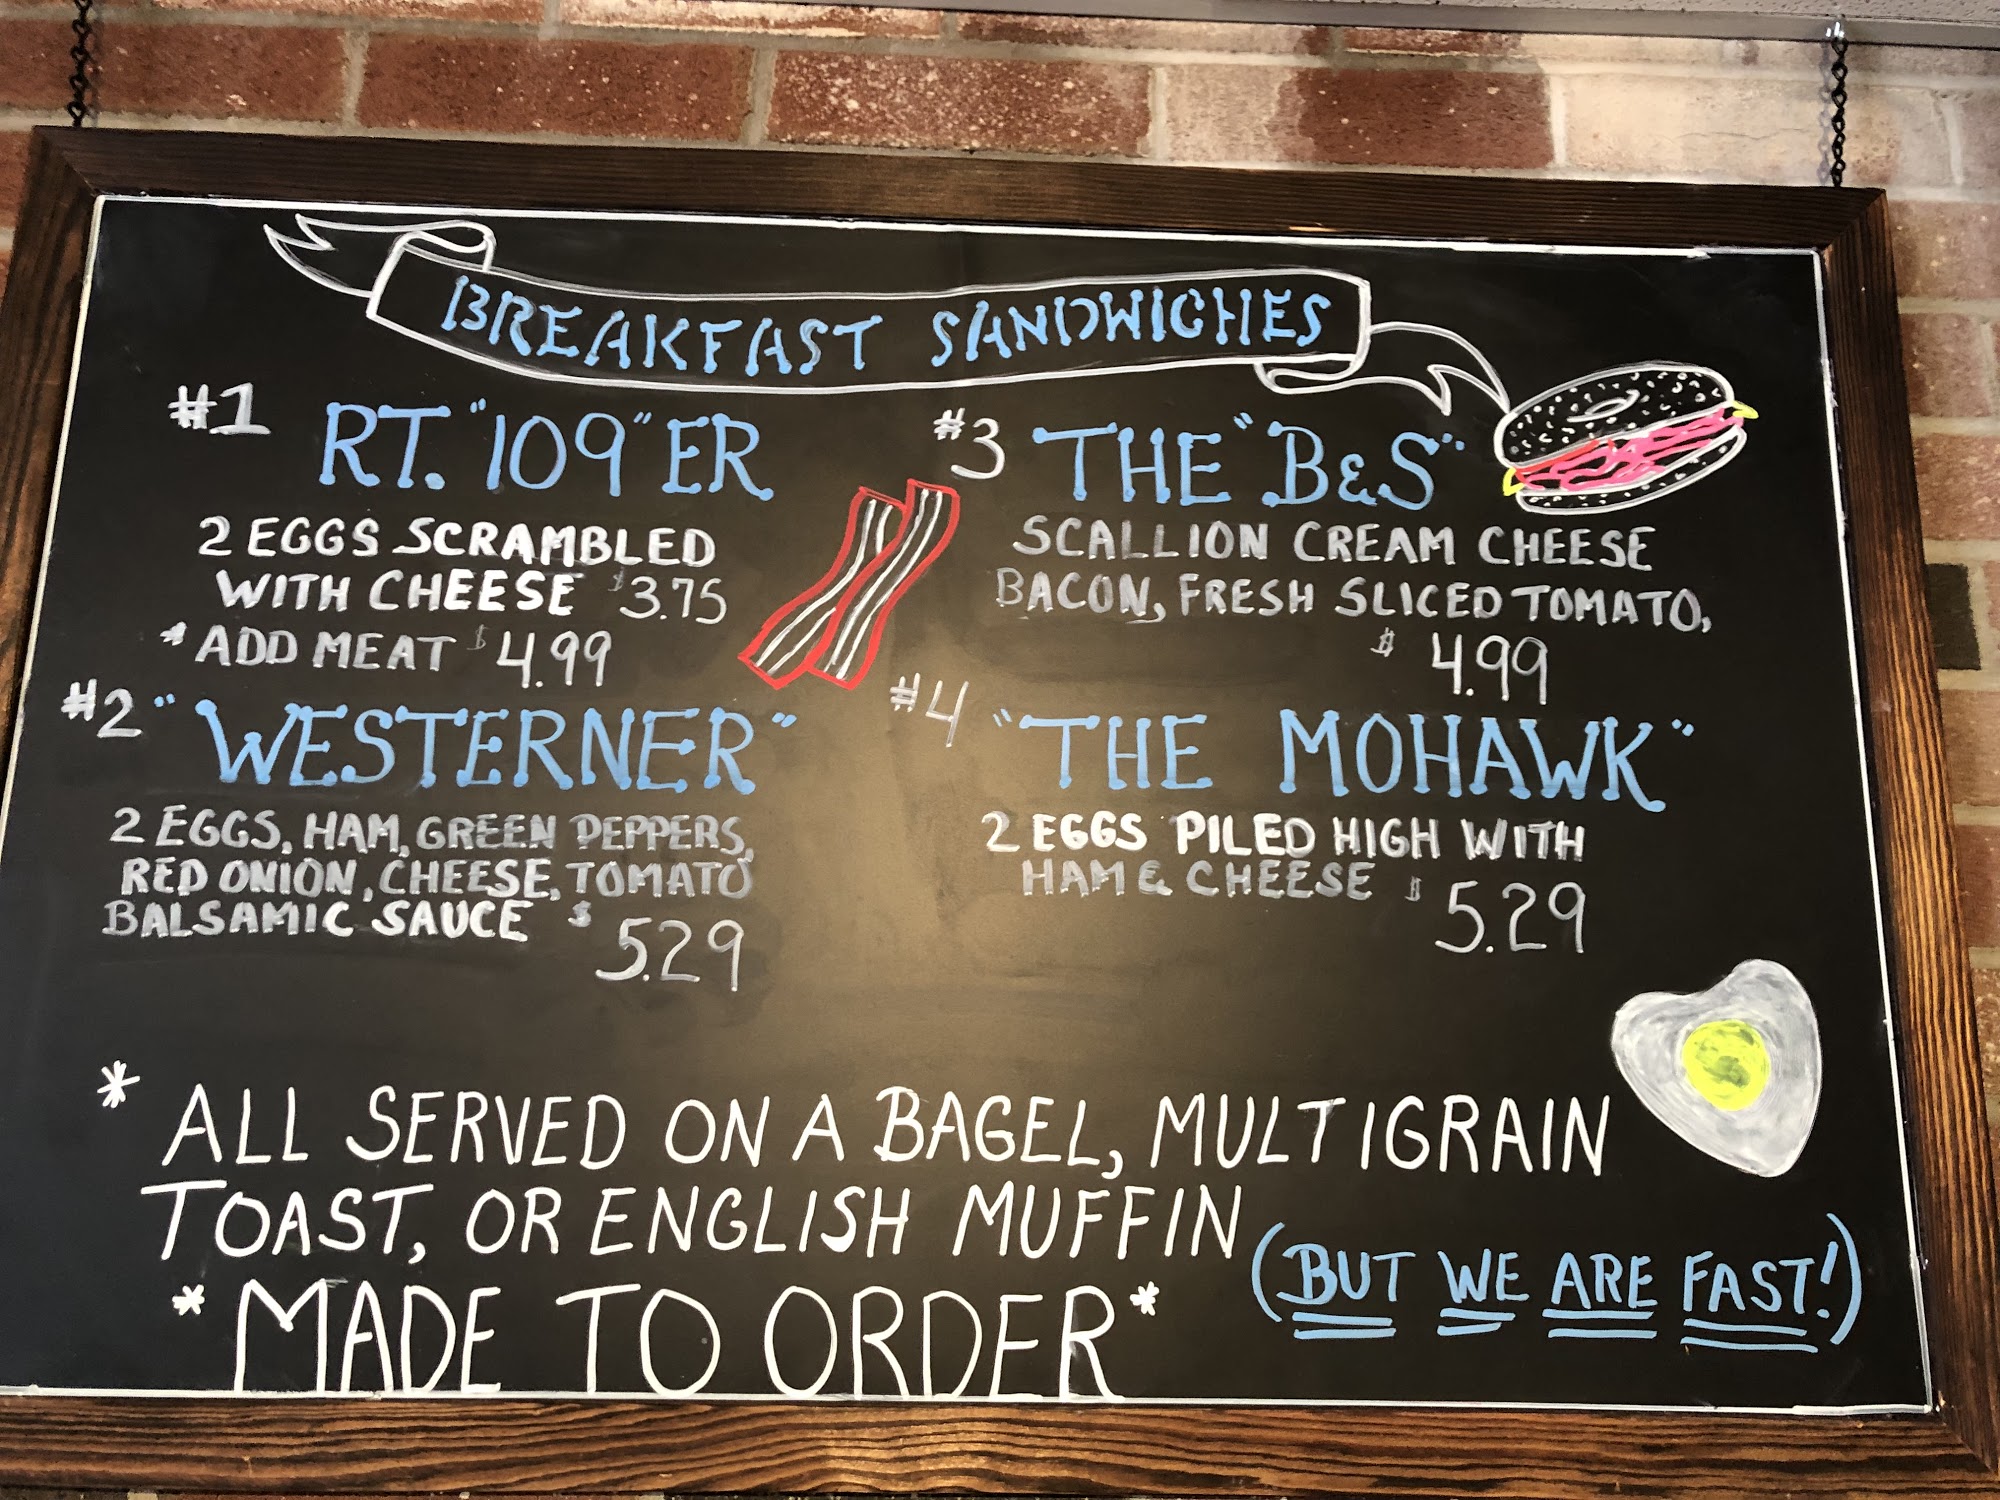 BREAKFAST SANDWICHES
#1 RT. "109" ER
2 EGGS SCRAMBLED
WITH CHEESE $3.75
*ADD MEAT $4.99
#2 "WESTERNER"
2 EGGS, HAM, GREEN PEPPERS,
RED ONION, CHEESE, TOMATO
BALSAMIC SAUCE $
5.29
#3 THE "B&S"
SCALLION CREAM CHEESE
BACON, FRESH SLICED TOMATO,
$ 4.99
#4 "THE MOHAWK"
2 EGGS PILED HIGH WITH
HAM & CHEESE $
5.29
* ALL SERVED ON A BAGEL, MULTIGRAIN
TOAST, OR ENGLISH MUFFIN
*MADE TO ORDER*
(BUT WE ARE FAST!)